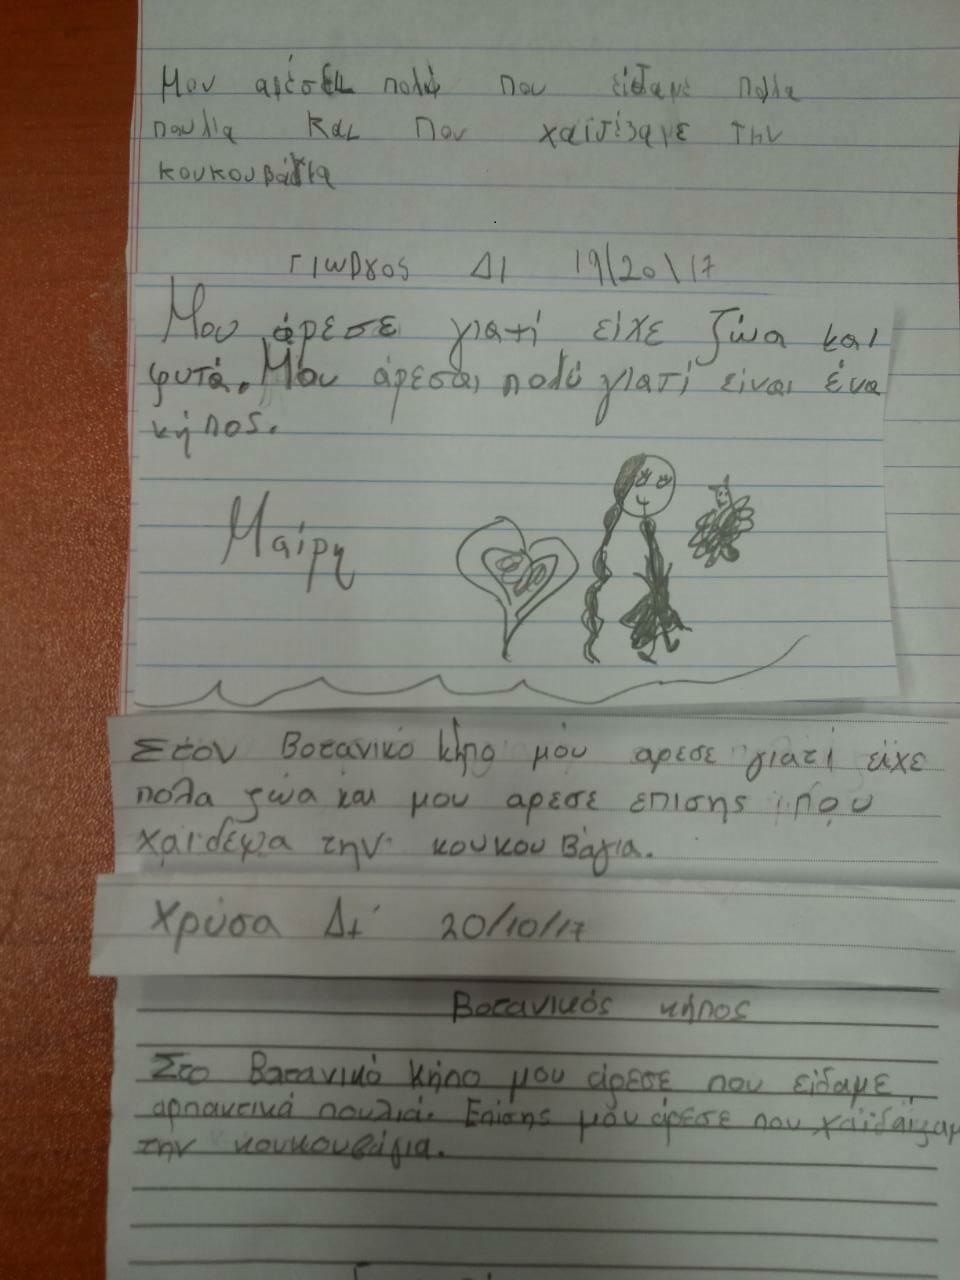 Μου αρέσει πολύ που είδαμε πολλα
πουλια και που χαϊδέβαμε την
κουκουβάγια
Γιωργος Δ1 19/20/17
Μου άρεσε γιατί είχε ζώα και
φυτά. Μου άρεσαι πολύ γιατί είναι ένα
κήπος.
Μαίρη
Στον Βοτανικό Κήπο μόυ αρεσε γιατί είχε
πολα ζώα και μου αρεσε επισης που
χαιδεψα την κουκουβάγια.
Χρύσα Δ1' 20/10/17
Βοτανικός κήπος
Στο Βοτανικό Κήπο μου άρεσε που είδαμε
αρπακτικά πουλιά. Επίσης μου άρεσε που
την κουκουβάγια.